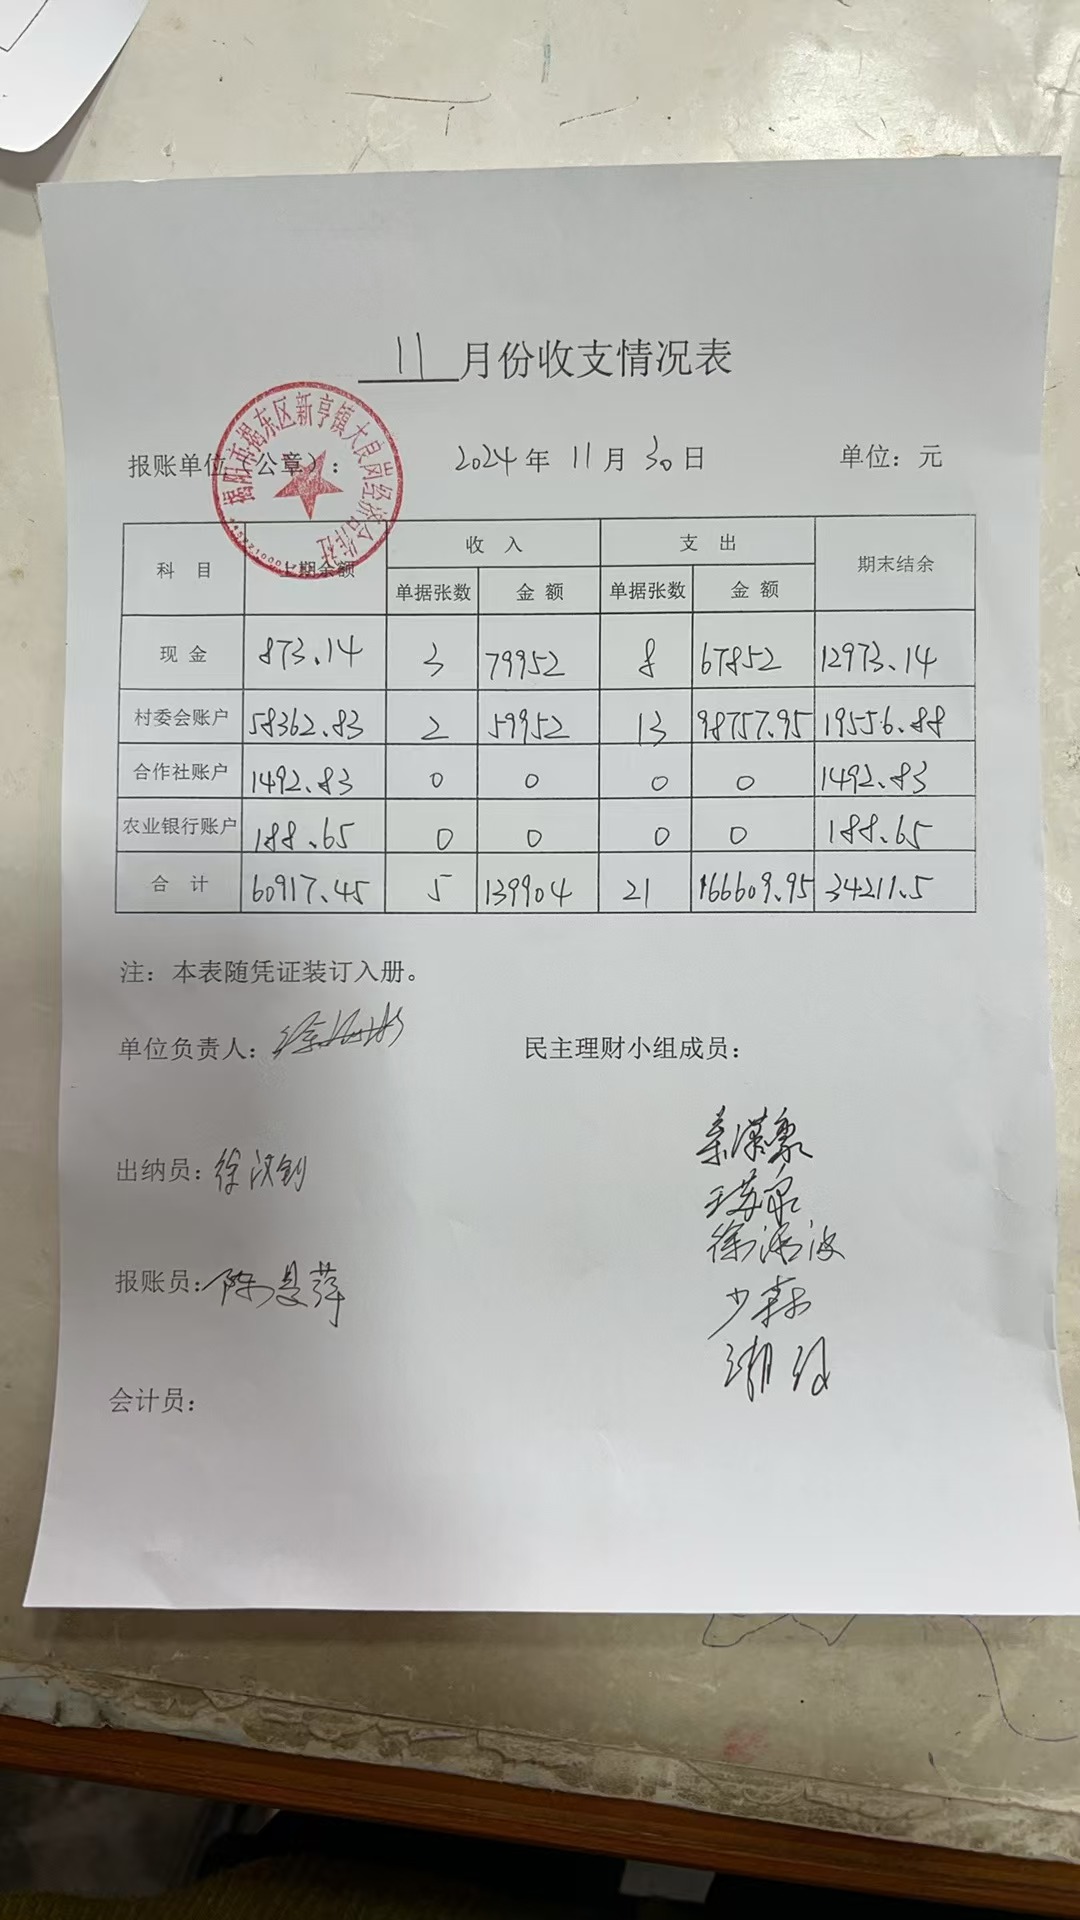 11 月份收支情况表
揭阳市揭东区新亨镇大良岗经济合作社
报账单位（公章）： 2024 年 11 月 30 日 单位：元
科 目 上期余额 收 入 支 出 期末结余
单据张数 金 额 单据张数 金 额
现 金 873.14 3 79952 8 67852 12973.14
村委会账户 58362.83 2 59952 13 98757.95 19556.88
合作社账户 1492.83 0 0 0 0 1492.83
农业银行账户 188.65 0 0 0 0 188.65
合 计 60917.45 5 139904 21 166609.95 34211.5
注：本表随凭证装订入册。
单位负责人： 民主理财小组成员：
出纳员：徐
报账员：陈
会计员：